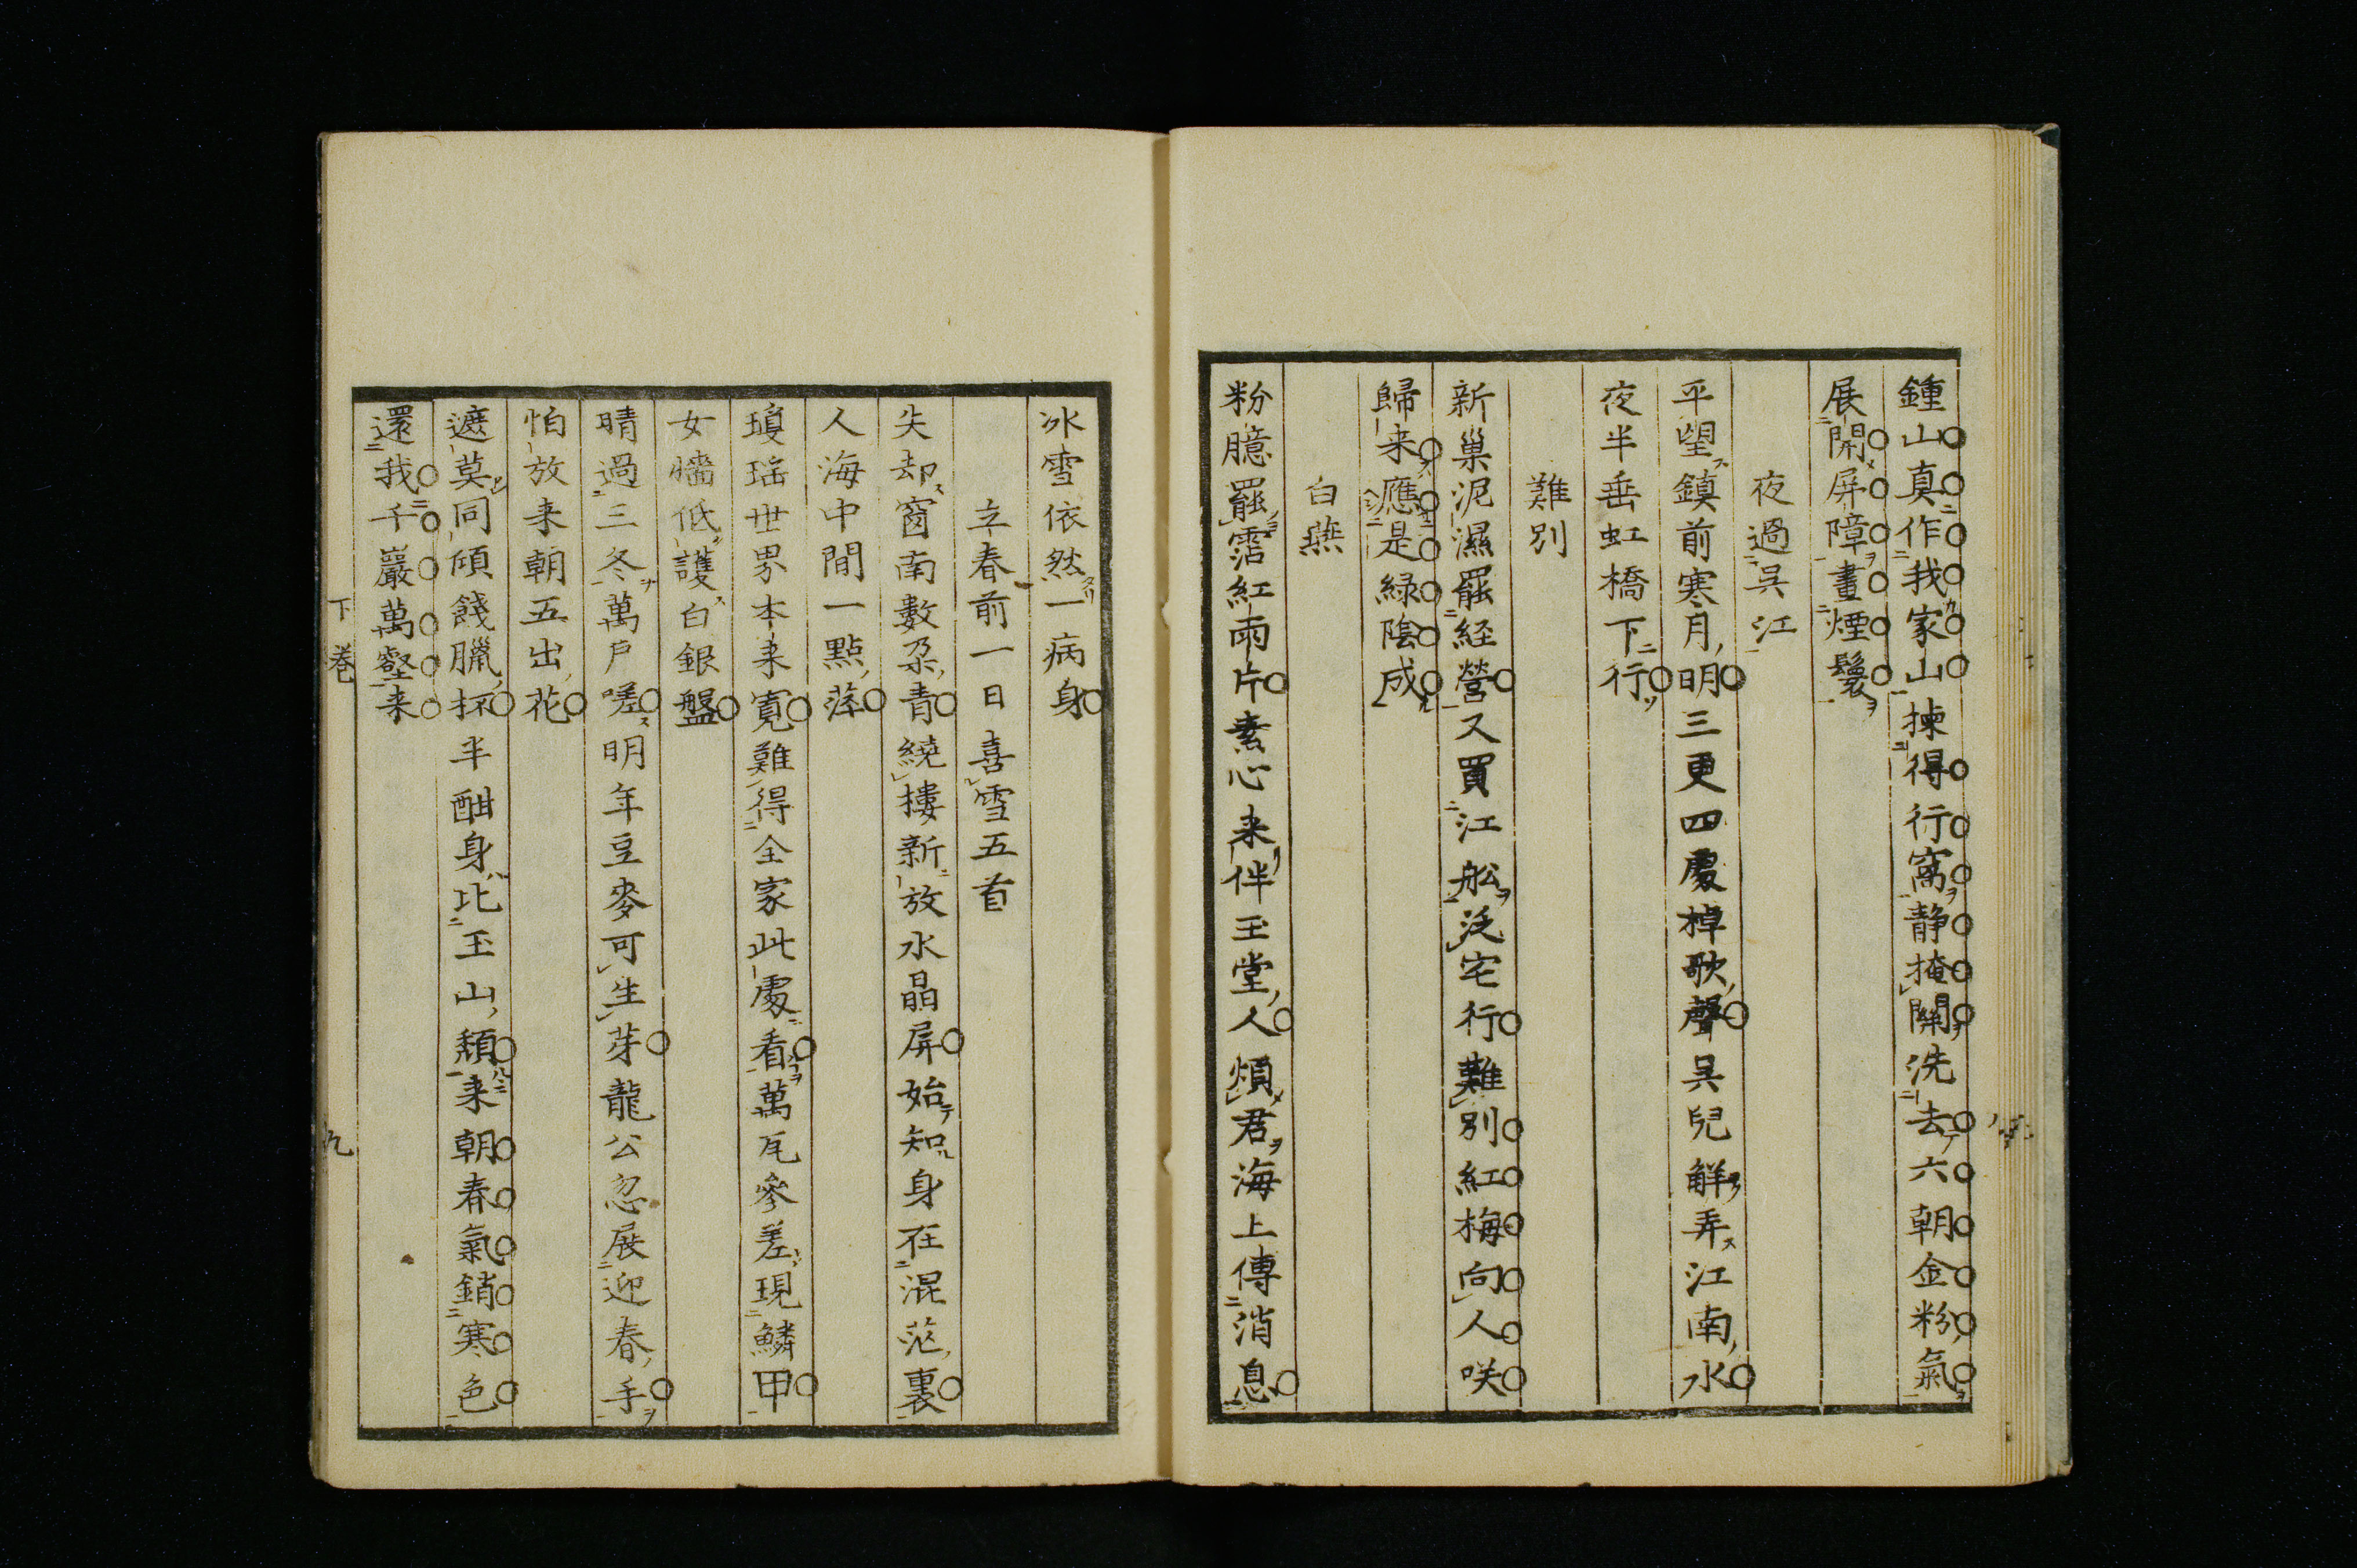 鍾山真作我家山揀得行窩静掩關洗去六朝金粉氣
展開屏障畫煙鬟
夜過呉江
平望鎮前寒月明三更四處棹歌聲呉兒解弄江南水
夜半垂虹橋下行
難別
新巢泥濕罷経營又買江船泛宅行難別紅梅向人咲
歸来應是緑陰成
白燕
粉臆罷霑紅雨片素心来伴玉堂人煩君海上傳消息
冰雪依然一病身
立春前一日喜雪五首
失却窗南數朶青繞摟新放水晶屏始知身在混茫裏
人海中間一點萍
瓊瑶世界本来寬難得全家此處看萬瓦參差現鱗甲
女墻低護白銀盤
晴過三冬萬戸嗟明年豆麥可生芽龍公忽展迎春手
怕放来朝五出花
遮莫同傾餞臘抔半酣身比玉山頽来朝春氣銷寒色
還我千巖萬壑来
下巻
九